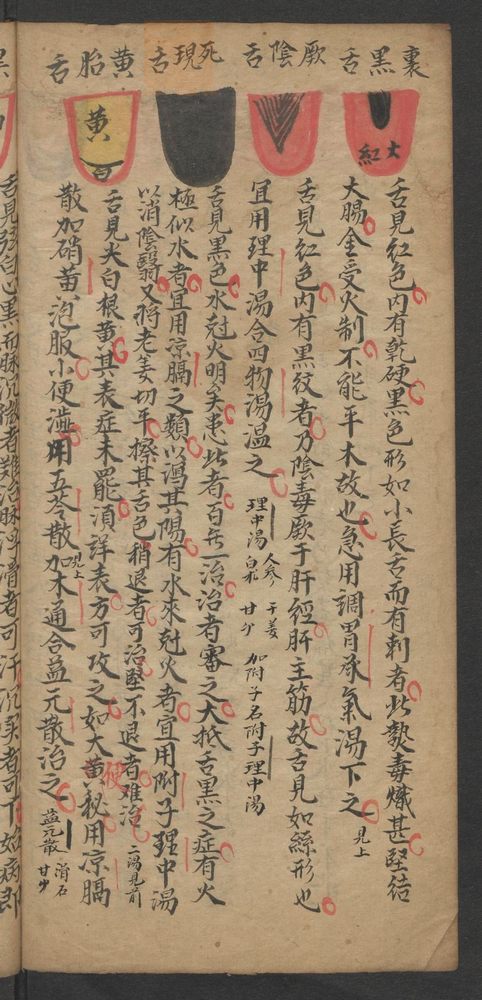 裏黑舌
大紅
舌見紅色内有乾硬黑色形如小長舌而有刺者此熱毒熾甚堅結
大腸金受火制不能平木故也急用調胃承氣湯下之 見上
厥陰舌
舌見紅色内有黑紋者乃陰毒厥于肝經肝主筋故舌見如絲形也
宜用理中湯合四物湯温之 理中湯 人參 干姜 白朮 甘艸 加附子名附子理中湯
死現舌
舌見黑色水尅火明矣患此者百無一治治者審之大抵舌黑之症有火
極似水者宜用凉膈之類以瀉其陽有水來尅火者宜用附子理中湯
以消陰翳又將老姜切平擦其舌色稍退者可治堅不退者难治 二湯見前
黄胎舌
黄
白
舌見尖白根黄其表症未罷須詳表方可攻之如大便秘用凉膈
散加硝黄泡服小便澁用五苓散 見上 加木通合益元散治之 益元散 滑石 甘艸
舌見弦白心黑而脉沉微者難治脉浮滑者可汗沉实者可下始病即